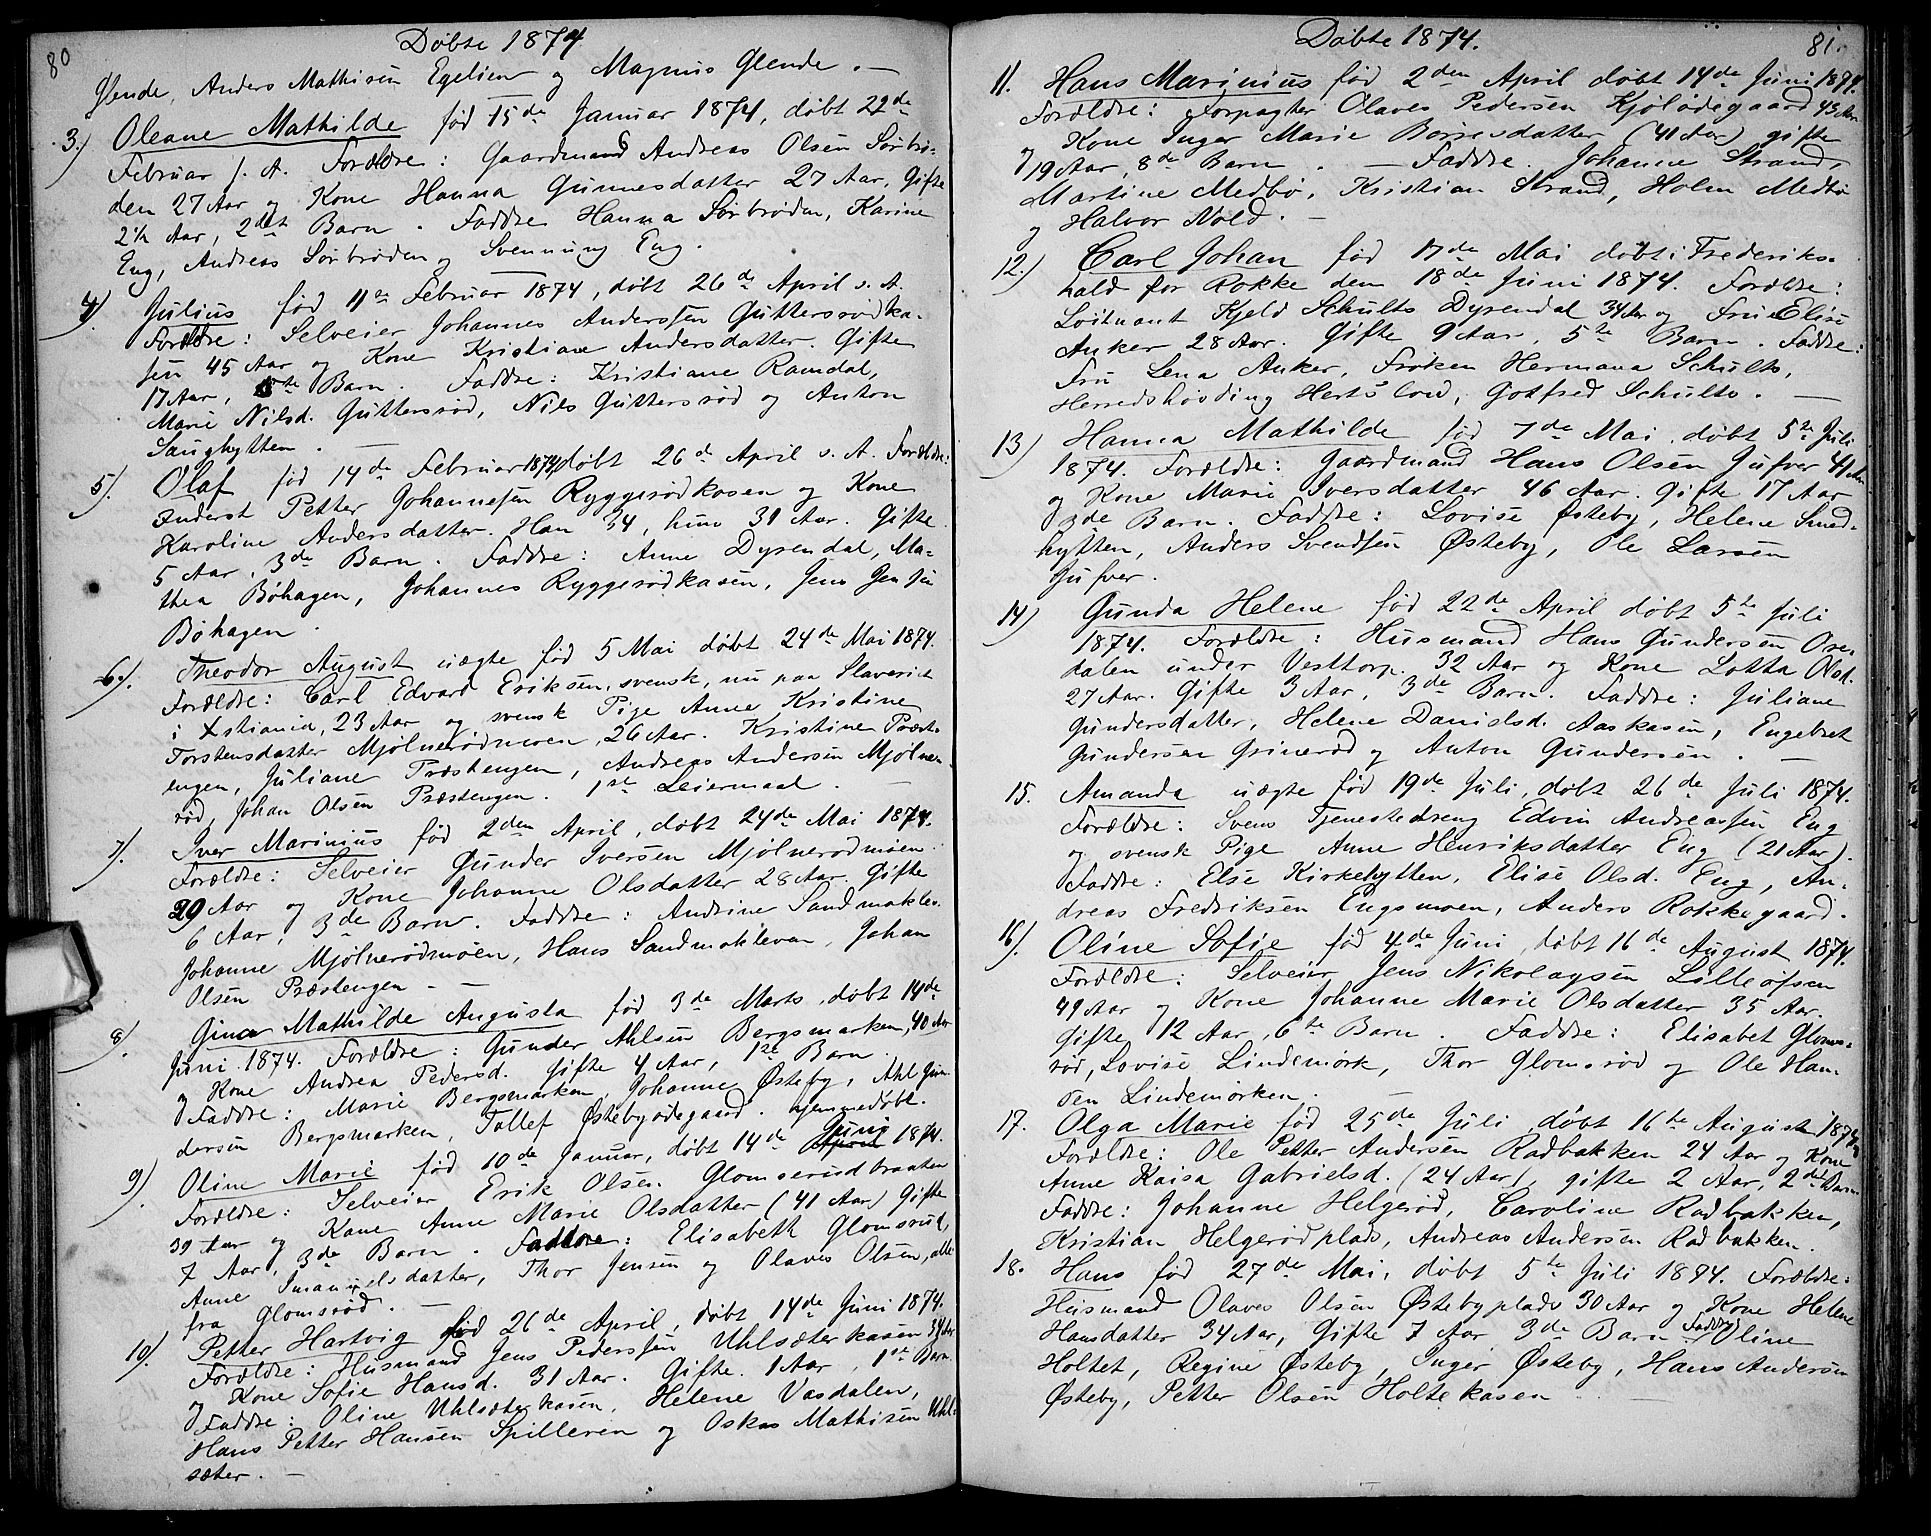 80
Døbte 1874
Glende, Anders Mathisen Egelien og Magnus Glende. —
3.) Oleane Mathilde født 15de Januar 1874, døbt 22de
Februar s. A. Forældre: Gaardmand Andreas Olsen Sørbrö-
den 27 Aar og Kone Hanna Gunnesdatter 27 Aar, Gifte
2½ Aar, 2det Barn. Faddre Hanna Sørbrøden, Karine
Eng, Andreas Sörbröden og Svennung Eng.
4) Julius fød 11te Februar 1874, døbt 26de April s. A.
Forældre: Selveier Johannes Anderssen Guttersrødka-
sen 45 Aar og Kone Kristiane Andersdatter. Gifte
17 Aar, 6te Barn. Faddre: Kristiane Ramdal,
Marie Nilsd. Guttersrød, Nils Guttersrød og Anton
Saughytten. —
5). Olaf fød 14de Februar 1874, døbt 26de April s. A. Forældre:
Inderst Petter Johannesen Ryggerødkasen og Kone
Karoline Andersdatter. Han 34, hun 31 Aar. Gifte
5 Aar, 3de Barn. Faddre: Anne Dyrendal, Ma-
thea Böhagen, Johannes Ryggerødkasen, Jens Jensen
Böhagen.
6). Theodor August uægte fød 5 Mai døbt 24de Mai 1874.
Forældre: Carl Edvard Eriksen, svensk, nu paa Slaveriet
i Xstiania, 23 Aar og svensk Pige Anne Kristine
Torstensdatter Mjölnerødmoen, 26 Aar. Kristine Præst-
engen, Juliane Præstengen, Andreas Andersen Mjölne-
rød, Johan Olsen Præstengen. 1ste Leiermaal.
7). Iver Marinius fød 2den April, døbt 24de Mai 1874.
Forældre: Selveier Gunder Iversen Mjölnerødmoen
29 Aar og Kone Johanne Olsdatter 28 Aar. Gifte
6 Aar, 3de Barn. Faddre: Andrine Sandmoklev.
Johanne Mjölnerødmoen, Hans Sandmokleven, Johan
Olsen Præstengen. —
8). Gina Mathilde Augusta fød 3de Marts, døbt 14de
Juni 1874. Forældre: Gunder Ahlsen Bergsmarken, 40 Aar
og Kone Andrea Pedersd. Gifte 4 Aar, 1ste Barn.
Faddre: Marie Bergsmarken, Johanne Østeby, Ahl Gun-
dersen Bergsmarken, Tollef Østebyødegaard. hjemmedøbt.
9). Oline Marie fød 10de Januar, døbt 14de Juni 1874.
Forældre: Selveier Erik Olsen Glomserudbraaten
39 Aar og Kone Anne Marie Olsdatter (41 Aar) Gifte
7 Aar, 3de Barn. Faddre: Elisabeth Glomsrud,
Anne Imanuelsdatter, Thor Jensen og Olaves Olsen, alle
fra Glomsrød. —
10). Petter Hartvig fød 26de April, døbt 14de Juni 1874.
Forældre: Husmand Jens Pederssen Uhlsæterkasen 34 Aar
og Kone Sofie Hansd. 31 Aar. Gifte 1 Aar, 1ste Barn.
Faddre: Oline Uhlsæterkasen, Helene Vasdalen,
Hans Petter Hansen Spilleren og Oskar Mathisen Uhl-
sæter. —
Døbte 1874.
81.
11. Hans Marinius fød 2den April døbt 14de Juni 1874.
Forældre: Forpagter Olaves Pedersen Kjölødegaard 43 Aar
og Kone Inger Marie Börresdatter (41 Aar) gifte
19 Aar, 8de Barn. — Faddre. Johanne Strand,
Martine Medbö, Kristian Strand, Holm Medbö
og Halvor Nold. —
12.) Carl Johan fød 17de Mai døbt i Frederiks-
hald for Rokke den 18de Juni 1874. Forældre:
Löitnant Kjeld Schults Dyrendal 34 Aar og Frue Elise
Anker 28 Aar. Gifte 9 Aar, 5te Barn. Faddre:
Fru Lena Anker, Frøken Hermana Schults,
Herredshövding Hertslow, Gotfred Schults. —
13) Hanna Mathilde fød 7de Mai, døbt 5te Juli
1874. Forældre: Gaardmand Hans Olsen Gufver 41 Aar
og Kone Marie Iversdatter 46 Aar. Gifte 17 Aar
3de Barn. Faddre: Lovise Østeby, Helene Smed-
hytten, Anders Svendsen Østeby, Ole Larsen
Gufver.
14) Gunda Helene fød 22de April døbt 5te Juli
1874. Forældre: Husmand Hans Gundersen Ore-
dalen under Vesttorp. 32 Aar og Kone Lotta Olsd.
27 Aar. Gifte 3 Aar, 3de Barn. Faddre: Juliane
Gundersdatter, Helene Danielsd. Aaskasen, Engebret
Gundersen Grinerød og Anton Gundersen. —
15. Amanda uægte fød 19de Juli, døbt 26de Juli 1874.
Forældre: Svens Tjenestedreng Edvin Andreassen Eng
og svensk Pige Anne Henriksdatter Eng (21 Aar).
Faddre: Else Kirkehytten, Elise Olsd. Eng, An-
dreas Fredriksen Engsmoen, Anders Rokkegaard.
16). Oline Sofie fød 4de Juni, døbt 16de August 1874.
Forældre: Selveier Jens Nikolaysen Lilleøfsen
49 Aar og Kone Johanne Marie Olsdatter 35 Aar.
Gifte 12 Aar, 6te Barn. Faddre: Elisabet Gloms-
rød, Lovise Lindemörk, Thor Glomsrød og Ole Han-
sen Lindemörken. —
17. Olga Marie fød 25de Juli døbt 16te August 1874
Forældre: Ole Petter Andersen Radbakken 24 Aar og Kone
Anne Kaisa Gabrielsd. (24 Aar), gifte 2 Aar, 2det Barn.
Faddre: Johanne Helgerød, Caroline Radbakken,
Kristian Helgerødplads, Andreas Andersen Radbakken.
18. Hans fød 27de Mai, døbt 5te Juli 1874. Forældre:
Husmand Olaves Olsen Østebyplads 30 Aar og Kone Helene
Hansdatter 34 Aar, Gifte 7 Aar 3de Barn. Faddre Oline
Holtet, Regine Østeby, Inger Østeby, Hans Andersen
Østeby, Petter Olsen Holtekasen